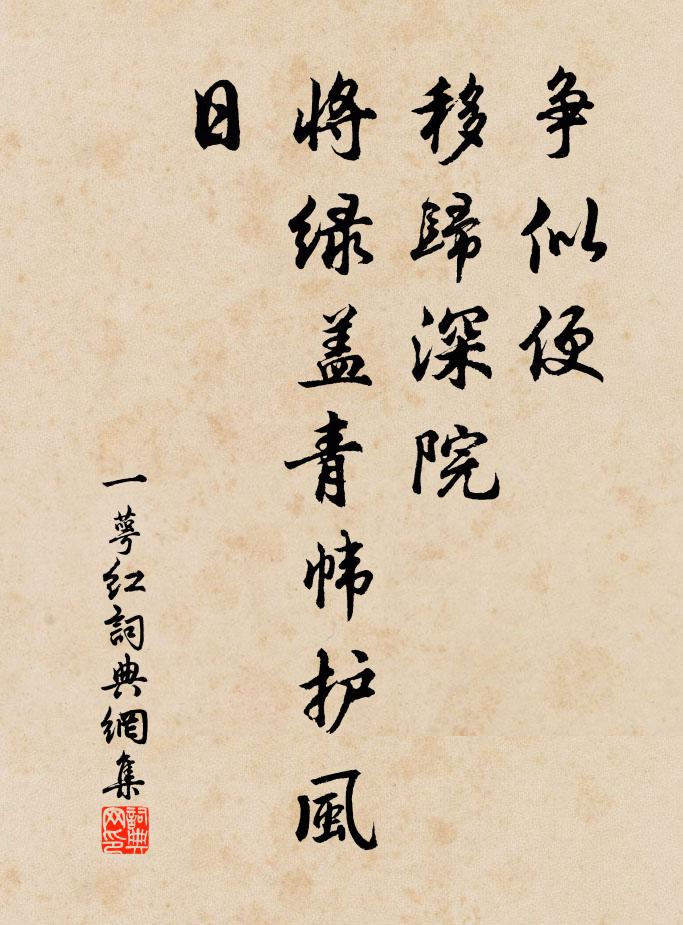 争似便
移歸深院
將绿盖青帏护風
日
一萼红詞典網集
詞典
网印